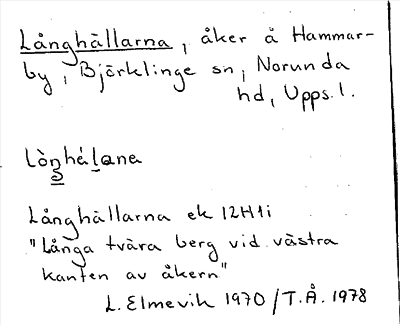 Långhällarna, åker å Hammar-
by, Björklinge sn, Norunda
hd, Upps. l.
Långhällarna ek 12H1i
"Långa tvära berg vid västra
kanten av åkern"
L. Elmevik 1970 / T.Å. 1978